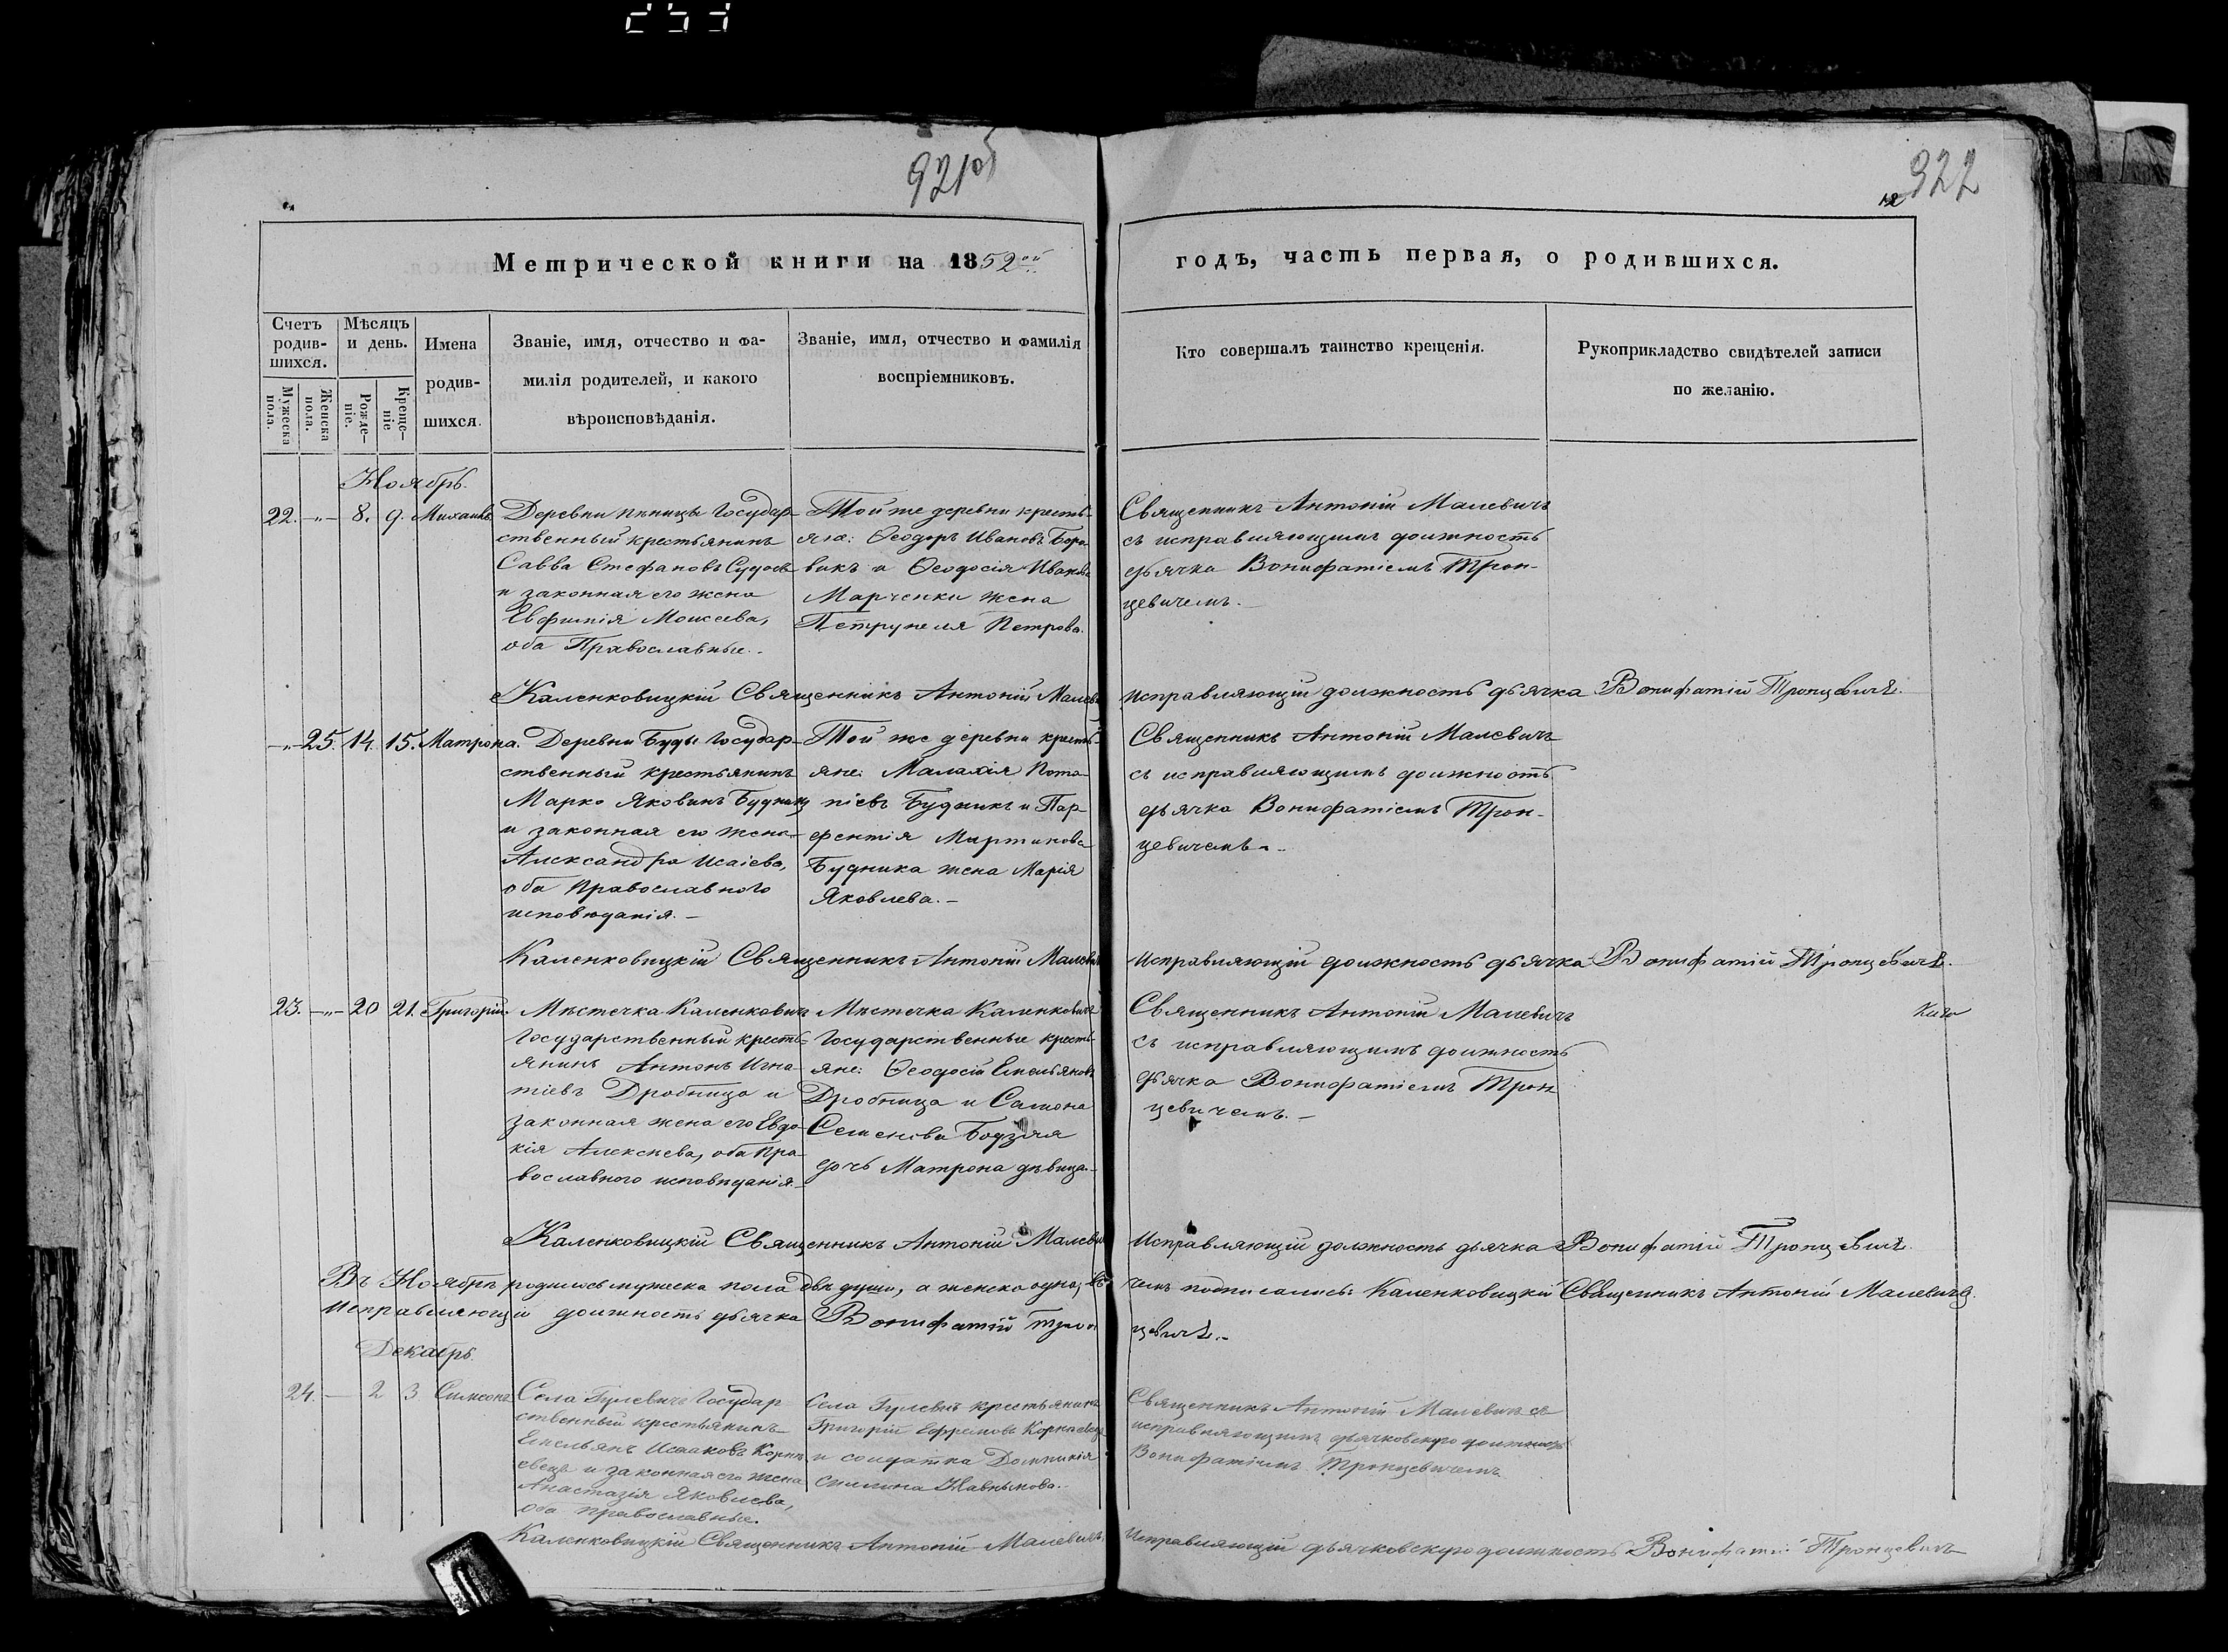 253
921об
322
12
Метрической книги на 1852ой
годъ, часть первая, о родившихся.
Счетъ родив-шихся.
Мужеска пола.
Женска пола.
Мѣсяцъ и день.
Рожде-ніе.
Креще-ніе
Имена родив-шихся.
Званіе, имя, отчество и фа-
милія родителей, и какого
вѣроисповѣданія.
Званіе, имя, отчество и фамилія
воспріемниковъ.
Кто совершалъ таинство крещенія.
Рукоприкладство свидѣтелей записи
по желанію.
Ноябрь.
22. -"- 8. 9. Михаилъ
Деревни Пѣницы Государ-
ственный крестьянинъ
Савва Стефановъ
и законная его жена
Евфимія Моисеева,
оба Православные.-
Той же деревни кресть-
яне: Ѳеодоръ Ивановъ Бора-
викъ и Ѳеодосія Иванова
Марченки жена
Петрунеля Петрова.
Священникъ Антоній Малевичъ
съ исправляющимъ должность
дьячка Вонифатіемъ Трон-
цевичемъ.-
Каленковицкій Священникъ Антоній Малевичъ
Исправляющій должность дьячка Вонифатій Тронцевичъ.
-"- 25. 14. 15. Матрона.
Деревни Буды Государ-
ственный крестьянинъ
Марко Яковинъ Будникъ
и законная его жена
Александра Исаіева,
оба Православного
исповѣданія.-
Той же деревни кресть-
яне: Малахія Пота-
піевъ Будникъ и Пар-
фентія Мартинова
Будника жена Марія
Яковлева.-
Священникъ Антоній Малевичъ
съ исправляющимъ должность
дьячка Вонифатіемъ Трон-
цевичемъ.-
Каленковицкій Священникъ Антоній Малевичъ
Исправляющій должность дьячка Вонифатій Тронцевичъ.
23. -"- 20 21. Григорій.
Мѣстечка Каленковичъ
Государственный кресть-
янинъ Антонъ Игна-
тіевъ Дробница и
законная жена его Евдо-
кія Алексѣева, оба Пра-
вославного исповѣданія.-
Мѣстечка Каленковичъ
Государственные кресть-
яне: Ѳеодосій Емельяновъ
Дробница и Самона
Семенова Бодзяя
дочь Матрона дѣвица.-
Священникъ Антоній Малевичъ
съ исправляющимъ должность
дьячка Вонифатіемъ Трон-
цевичемъ.-
Каленковицкій Священникъ Антоній Малевичъ
Исправляющій должность дьячка Вонифатій Тронцевичъ.
Въ Ноябрѣ родилось мужеска пола двѣ души, а женска одна, въ
чемъ подписались: Каленковицкій Священникъ Антоній Малевичъ.
Исправляющій должность дьячка Вонифатій Трон-
цевичъ.-
Декабрь.
24. - 2 3 Симеонъ
Села Гулевичъ Государ-
ственный крестьянинъ
Емельянъ Исааковъ Корне-
евецъ и законная его жена
Анастазія Яковлева,
оба православные.
Села Гулевичъ крестьянинъ
Григорій Ефремовъ Корнеевецъ
и солдатка Домникія
Священникъ Антоній Малевичъ съ
исправляющимъ дьячковскую должность
Вонифатіемъ Тронцевичемъ
Каленковицкій Священникъ Антоній Малевичъ.
Исправляющій дьячковскую должность Вонифатій Тронцевичъ